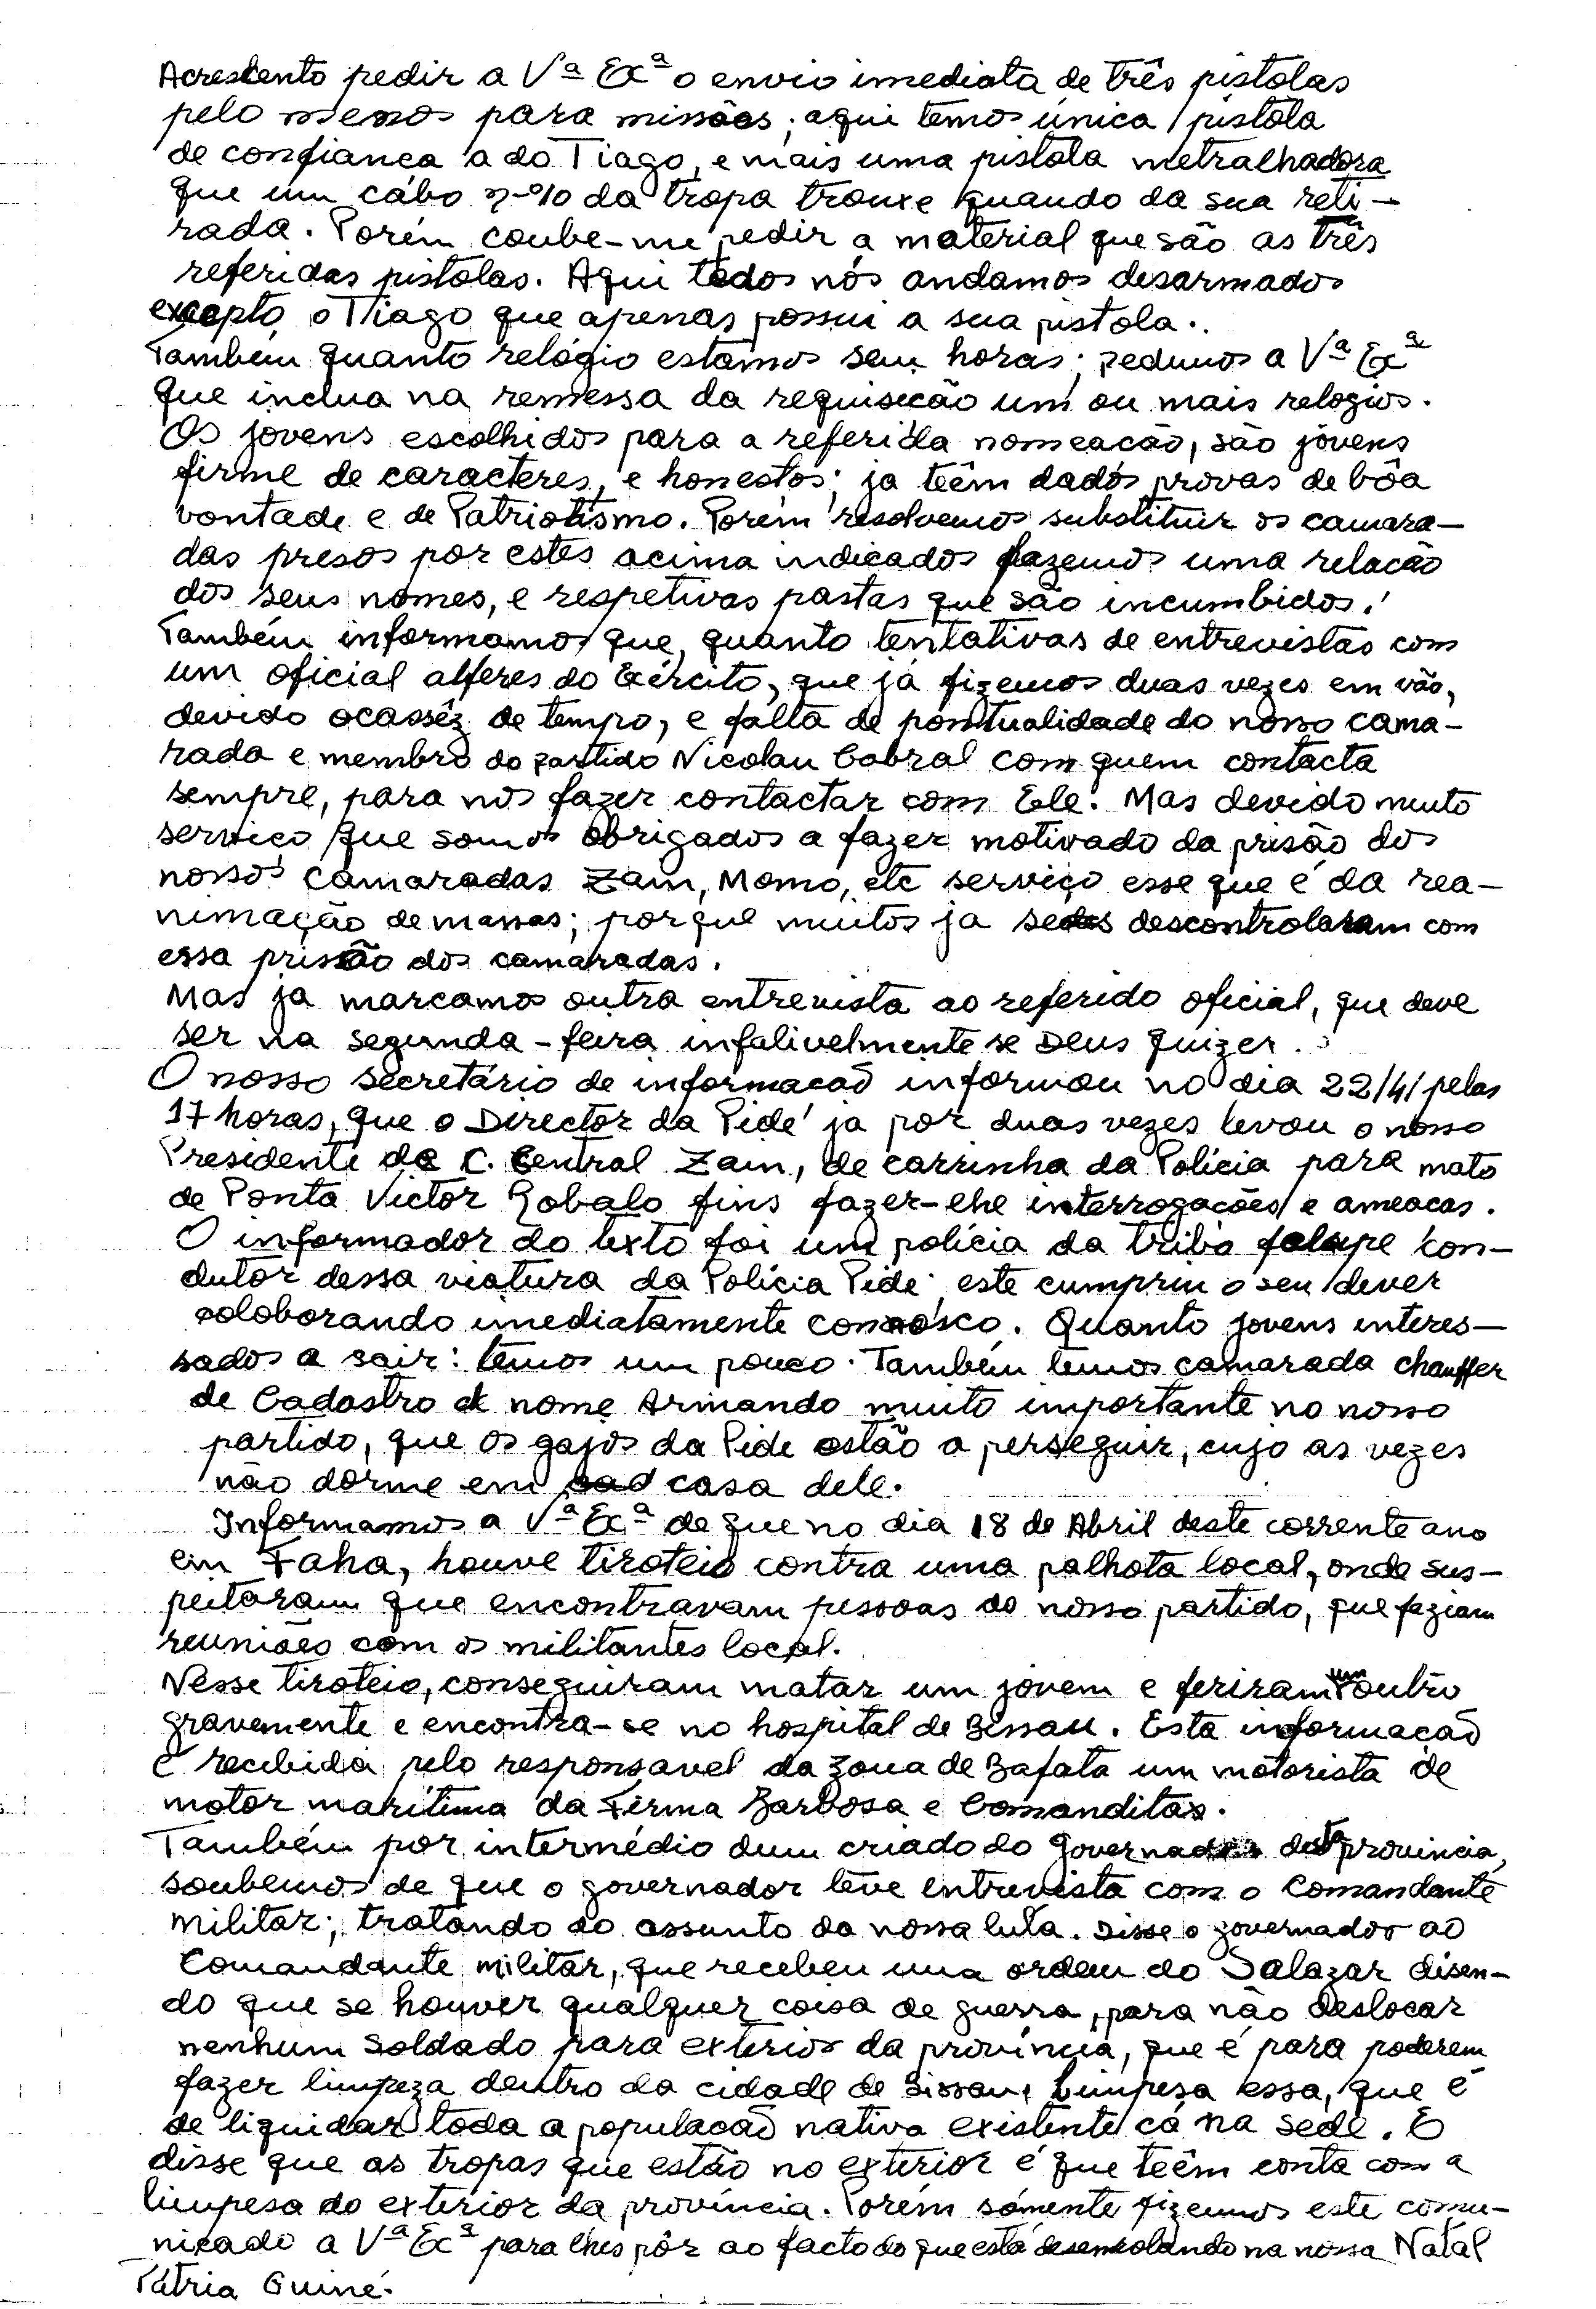 Acrescento pedir a Vª Exª o envio imediata de três pistolas
pelo menos para missões; aqui temos única pistola
de confiança a do Tiago, e mais uma pistola metralhadora
que um cábo nº 10 da tropa trouxe quando da sua reti-
rada. Porém coube-me pedir a material que são as três
referidas pistolas. Aqui todos nós andamos desarmados
excepto o Tiago que apenas possui a sua pistola.
Também quanto relógio estamos sem horas; pedimos a Vª Exª
que inclua na remessa da requisicão um ou mais relogios.
Os jovens escolhidos para a referida nomeacão, são jóvens
firme de caracteres, e honestos; ja teêm dados provas de bôa
vontade e de Patriotismo. Porém resolvemos substituir os camara-
das presos por estes acima indicados fazemos uma relacão
dos seus nomes, e respetivas pastas que são incumbidos.
Também informamos que, quanto tentativas de entrevistas com
um oficial alferes do Exército, que já fizemos duas vezes em vão,
devido ocassêz de tempo, e falta de pontualidade do nosso cama-
rada e membro do partido Nicolau Cabral com quem contacta
sempre, para nos fazer contactar com Ele. Mas devido muito
servico que somos obrigados a fazer motivado da prisão dos
nossos camaradas Zain, Momo, etc serviço esse que é da rea-
nimação de massas; porque muitos ja se descontrolaram com
essa prisão dos camaradas.
Mas ja marcamos outra entrevista ao referido oficial, que deve
ser na segunda-feira infalivelmente se Deus quizer.
O nosso secretário de informacaõ informou no dia 22/4/ pelas
17 horas, que o Director da Pide ja por duas vezes levou o nosso
Presidente do C. Central Zain, de carrinha da Polícia para mato
de Ponta Victor Robalo fins fazer-lhe interrogacões e ameacas.
O informador do texto foi um polícia da tribo felupe con-
dutor dessa viatura da Polícia Pide este cumpriu o seu dever
coloborando imediatamente connôsco. Quanto jovens interes-
sados a sair: temos um pouco. Também temos camarada chauffer
de Cadastro de nome Armando muito importante no nosso
partido, que os gajos da Pide estão a perseguir, cujo as vezes
não dorme em casa dele.
Informamos a Vª Exª de que no dia 18 de Abril deste corrente ano
em Faha, houve tiroteio contra uma palhota local, onde sus-
peitaram que encontravam pessoas do nosso partido, que faziam
reuniões com os militantes local.
Nesse tiroteio, conseguiram matar um jovem e feriram um outro
gravemente e encontra-se no hospital de Bissau. Esta informacaõ
é recebida pelo responsavel da zona de Bafata um motorista de
motor marítima da Firma Barbosa e Comanditas.
Também por intermédio dum criado do governador desta provincia,
soubemos de que o governador teve entrevista com o Comandante
militar; tratando do assunto da nossa luta. Disse o governador ao
Comandante militar, que recebeu uma ordem do Salazar disen-
do que se houver qualquer coisa de guerra, para não deslocar
nenhum soldado para exterior da província, que é para poderem
fazer limpeza dentro da cidade de Bissau, limpesa essa, que é
de liquidar toda a populacaõ nativa existente cá na sede. E
disse que as tropas que estão no exterior é que teêm conta com a
limpesa do exterior da província. Porém sómente fizemos este comu-
nicado a Vª Exª para lhes pôr ao facto do que está desenrolando na nossa Natal
Pátria Guiné.